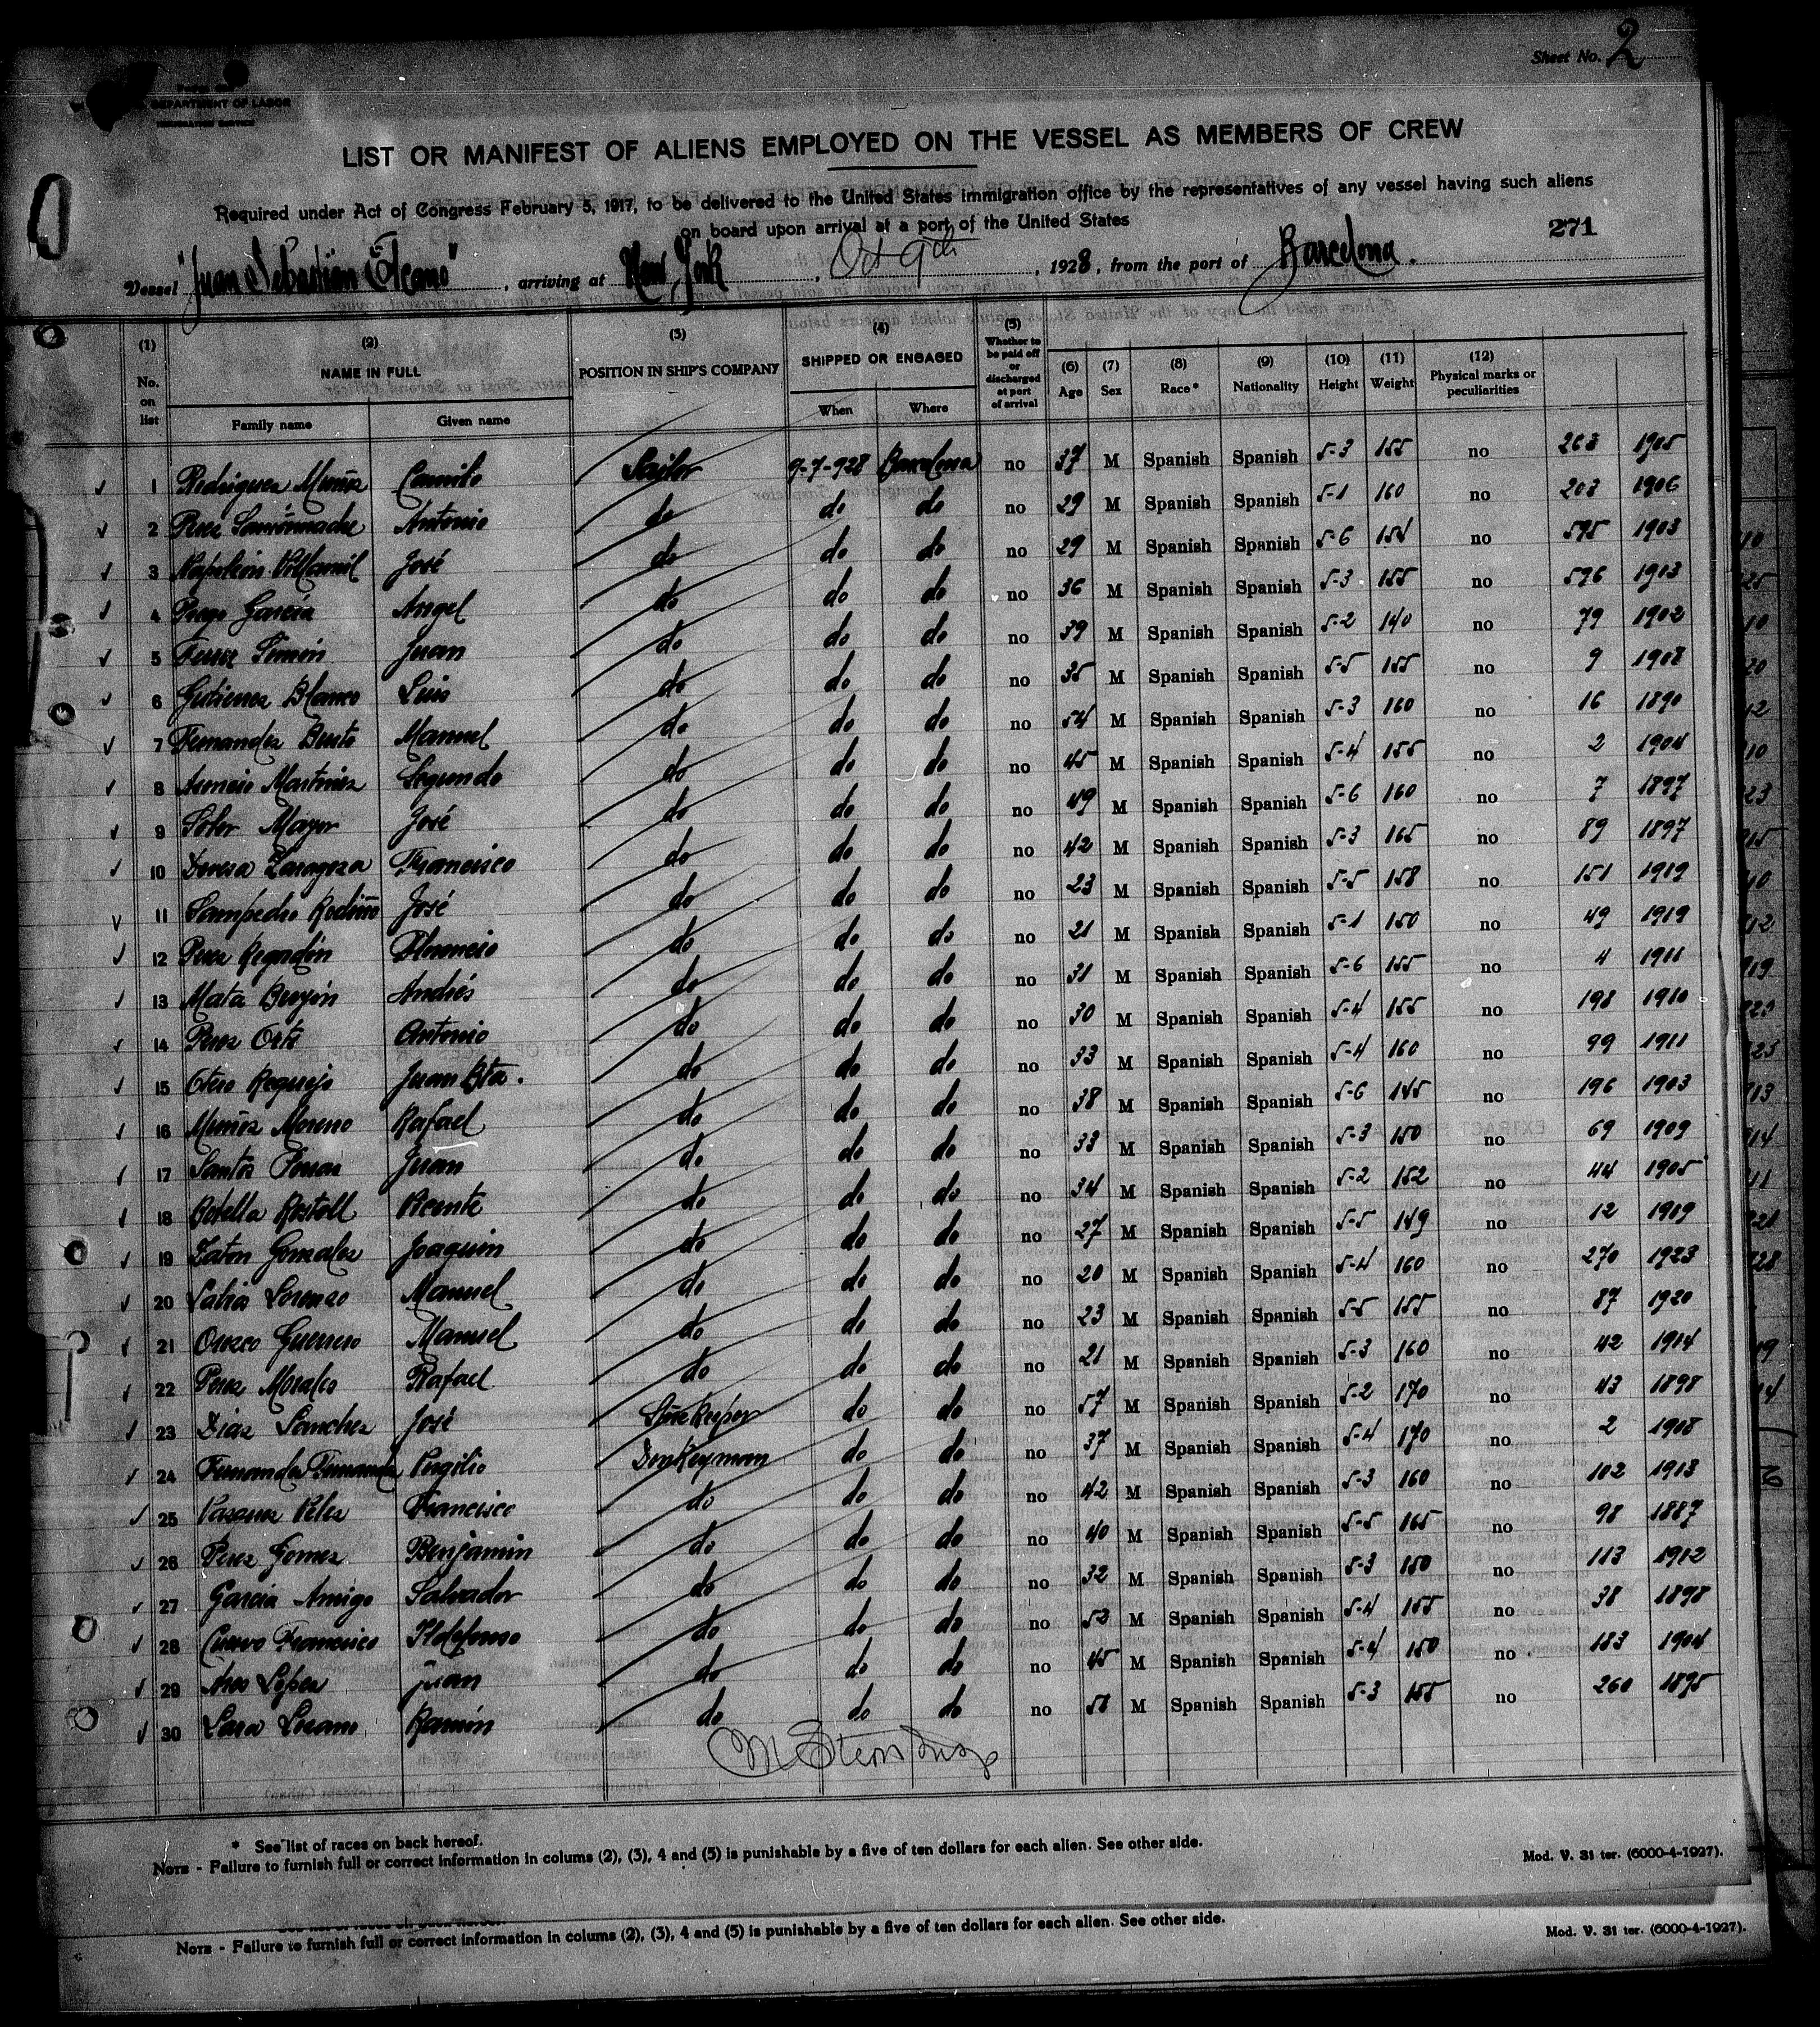 Sheet No. 2
DEPARTMENT OF LABOR
IMMIGRATION SERVICE
LIST OR MANIFEST OF ALIENS EMPLOYED ON THE VESSEL AS MEMBERS OF CREW
Required under Act of Congress February 5, 1917, to be delivered to the United States immigration office by the representatives of any vessel having such aliens
on board upon arrival at a port of the United States
271
Vessel "Juan Sebastián Elcano", arriving at New York, Oct 9th, 1928, from the port of Barcelona.
(1) No. on list (2) NAME IN FULL (3) POSITION IN SHIP'S COMPANY (4) SHIPPED OR ENGAGED (5) Whether to be paid off or discharged at port of arrival (6) Age (7) Sex (8) Race* (9) Nationality (10) Height (11) Weight (12) Physical marks or peculiarities
Family name Given name When Where
1 Rodriguez Muñiz Camilo Sailor 9-7-928 Barcelona no 37 M Spanish Spanish 5-3 155 no 263 1905
2 Perez Antonio do do do no 29 M Spanish Spanish 5-1 160 no 203 1906
3 Napoleón Villamil José do do do no 29 M Spanish Spanish 5-6 154 no 595 1903
4 Prego García Angel do do do no 36 M Spanish Spanish 5-3 155 no 596 1913
5 Ferrer Simón Juan do do do no 39 M Spanish Spanish 5-2 140 no 79 1902
6 Gutierrez Blanco Luis do do do no 35 M Spanish Spanish 5-5 155 no 9 1908
7 Fernandez Benito Manuel do do do no 54 M Spanish Spanish 5-3 160 no 16 1890
8 Asensio Martinez Segundo do do do no 45 M Spanish Spanish 5-4 155 no 2 1904
9 Soler Mayor José do do do no 49 M Spanish Spanish 5-6 160 no 7 1897
10 Devesa Zaragoza Francisco do do do no 42 M Spanish Spanish 5-3 165 no 89 1897
11 Sampedro Rediño José do do do no 23 M Spanish Spanish 5-5 158 no 151 1919
12 Perez Regadón Florencio do do do no 21 M Spanish Spanish 5-1 150 no 49 1919
13 Mata Andrés do do do no 31 M Spanish Spanish 5-6 155 no 4 1911
14 Perez Orts Antonio do do do no 30 M Spanish Spanish 5-4 155 no 198 1910
15 Otero Requejo Juan Bta. do do do no 33 M Spanish Spanish 5-4 160 no 99 1911
16 Muñoz Moreno Rafael do do do no 38 M Spanish Spanish 5-6 145 no 196 1903
17 Santos Juan do do do no 33 M Spanish Spanish 5-3 150 no 69 1909
18 Botella Rostoll Vicente do do do no 34 M Spanish Spanish 5-2 152 no 44 1905
19 Zaton Gonzalez Joaquin do do do no 27 M Spanish Spanish 5-5 149 no 12 1919
20 Lorenzo Manuel do do do no 20 M Spanish Spanish 5-4 160 no 270 1923
21 Orozco Guerrero Manuel do do do no 23 M Spanish Spanish 5-5 155 no 87 1920
22 Perez Morales Rafael do do do no 21 M Spanish Spanish 5-3 160 no 42 1914
23 Diaz Sanchez José Storekeeper do do no 57 M Spanish Spanish 5-2 170 no 43 1898
24 Fernandez Fernandez Virgilio Donkeyman do do no 37 M Spanish Spanish 5-4 170 no 2 1908
25 Vazquez Velez Francisco do do do no 42 M Spanish Spanish 5-3 160 no 102 1913
26 Perez Gomez Benjamin do do do no 40 M Spanish Spanish 5-5 165 no 98 1887
27 García Amigo Salvador do do do no 32 M Spanish Spanish 5-3 150 no 113 1912
28 Cuervo Francisco Ildefonso do do do no 53 M Spanish Spanish 5-4 155 no 38 1898
29 López Juan do do do no 45 M Spanish Spanish 5-4 150 no 183 1904
30 Lara Lozano Ramón do do do no 51 M Spanish Spanish 5-3 155 no 260 1895
* See list of races on back hereof.
NOTE - Failure to furnish full or correct information in colums (2), (3), 4 and (5) is punishable by a five of ten dollars for each alien. See other side.
Mod. V. 31 ter. (6000-4-1927).
NOTE - Failure to furnish full or correct information in colums (2), (3), 4 and (5) is punishable by a five of ten dollars for each alien. See other side.
Mod. V. 31 ter. (6000-4-1927).